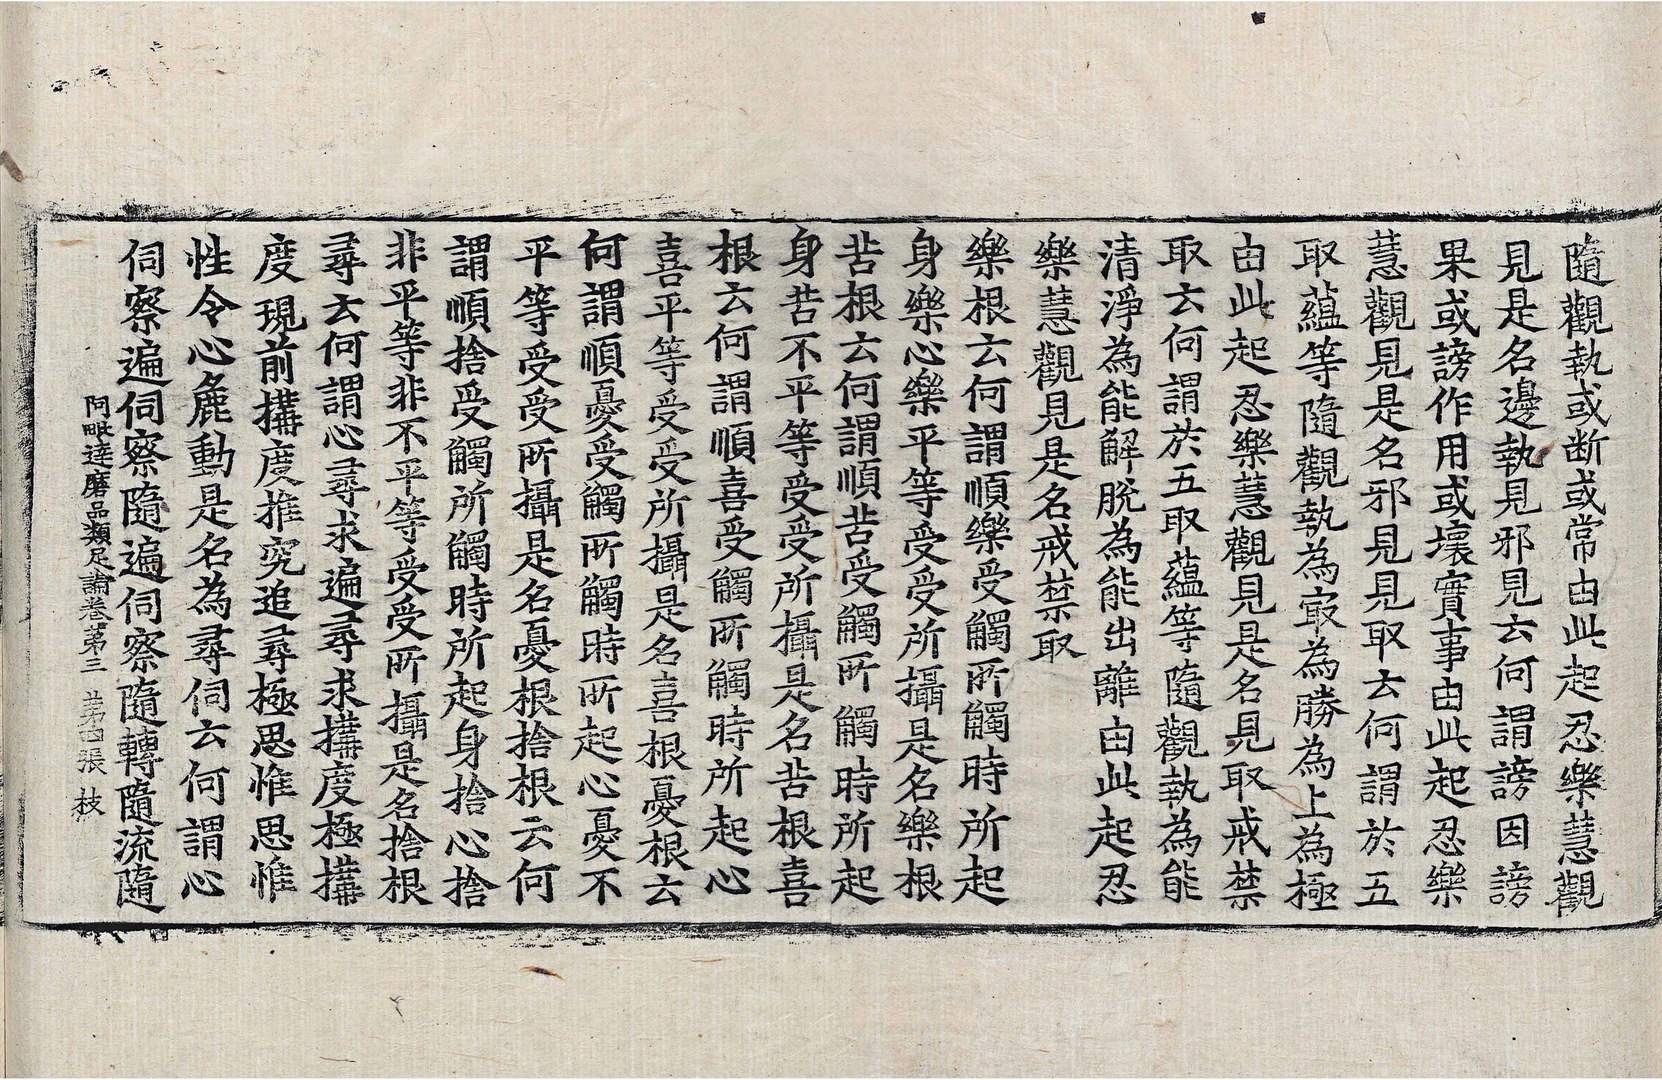 隨觀執或断或常由此起忍樂慧觀
見是名邊執見邪見云何謂謗因謗
果或謗作用或壞實事由此起忍樂
慧觀見是名邪見見取云何謂於五
取蘊等隨觀執為㝡為勝為上為極
由此起忍樂慧觀見是名見取戒禁
取云何謂於五取蘊等隨觀執為能
清淨為能解脫為能出離由此起忍
樂慧觀見是名戒禁取
樂根云何謂順樂受觸所觸時所起
身樂心樂平等受受所攝是名樂根
苦根云何謂順苦受觸所觸時所起
身苦不平等受受所攝是名苦根喜
根云何謂順喜受觸所觸時所起心
喜平等受受所攝是名喜根憂根云
何謂順憂受觸所觸時所起心憂不
平等受受所攝是名憂根捨根云何
謂順捨受觸所觸時所起身捨心捨
非平等非不平等受受所攝是名捨根
尋云何謂心尋求遍尋求搆度極搆
度現前搆度推究追尋極思惟思惟
性令心麁動是名為尋伺云何謂心
伺察遍伺察隨遍伺察隨轉隨流隨
阿毗達磨品類足論卷第三 第四張 枝